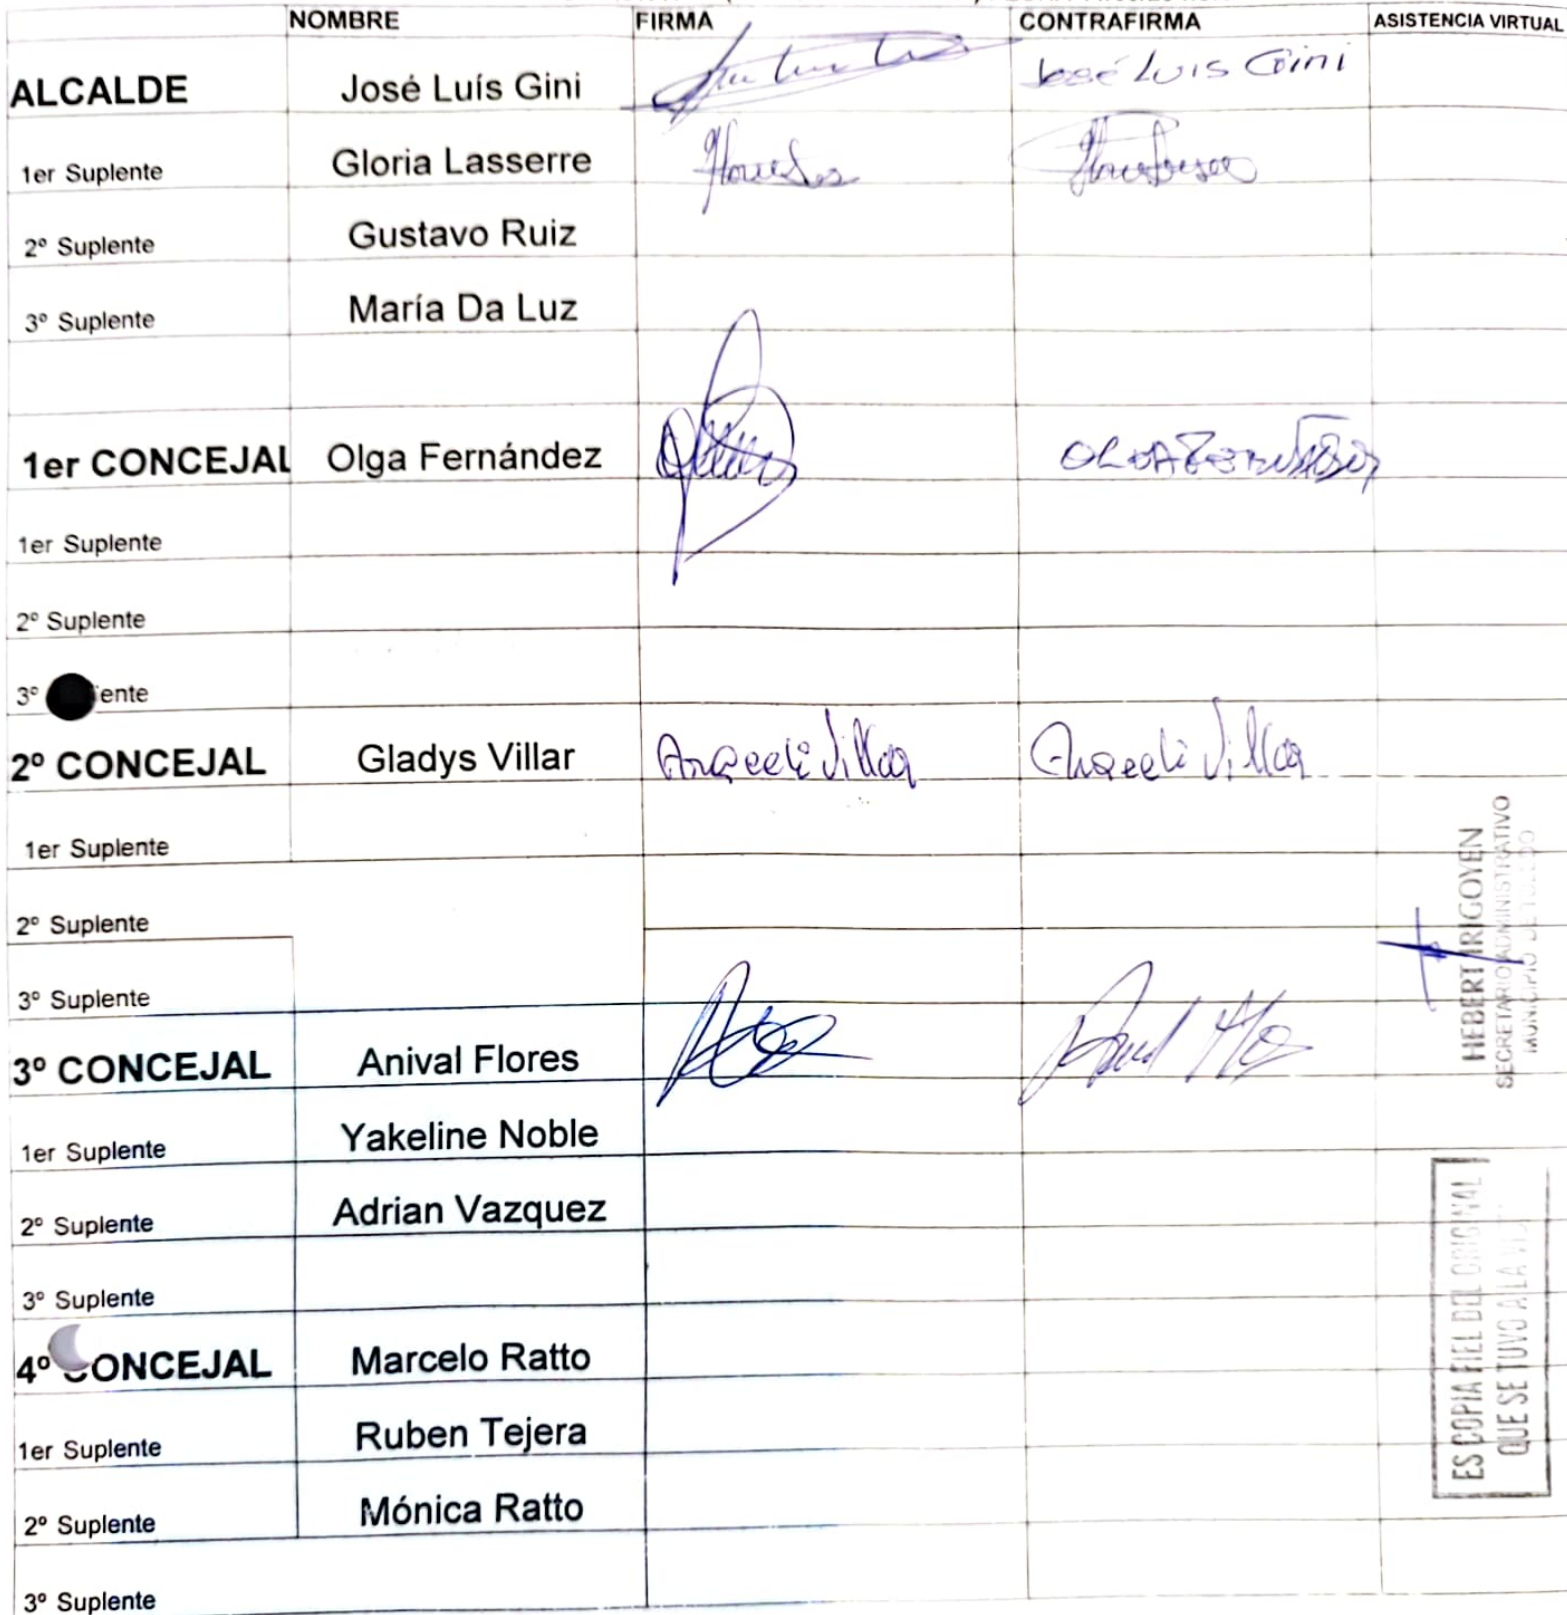 NOMBRE FIRMA CONTRAFIRMA ASISTENCIA VIRTUAL
ALCALDE José Luís Gini José Luis Gini
1er Suplente Gloria Lasserre
2º Suplente Gustavo Ruiz
3º Suplente María Da Luz
1er CONCEJAL Olga Fernández
1er Suplente
2º Suplente
3º ente
2º CONCEJAL Gladys Villar Araceli Villar Araceli Villar
1er Suplente
2º Suplente
3º Suplente
3º CONCEJAL Anival Flores
1er Suplente Yakeline Noble
2º Suplente Adrian Vazquez
3º Suplente
4º CONCEJAL Marcelo Ratto
1er Suplente Ruben Tejera
2º Suplente Mónica Ratto
3º Suplente
HEBERT IRIGOYEN
SECRETARIO ADMINISTRATIVO
MUNICIPIO DE TOLEDO
ES COPIA FIEL DEL ORIGINAL
QUE SE TUVO A LA VISTA